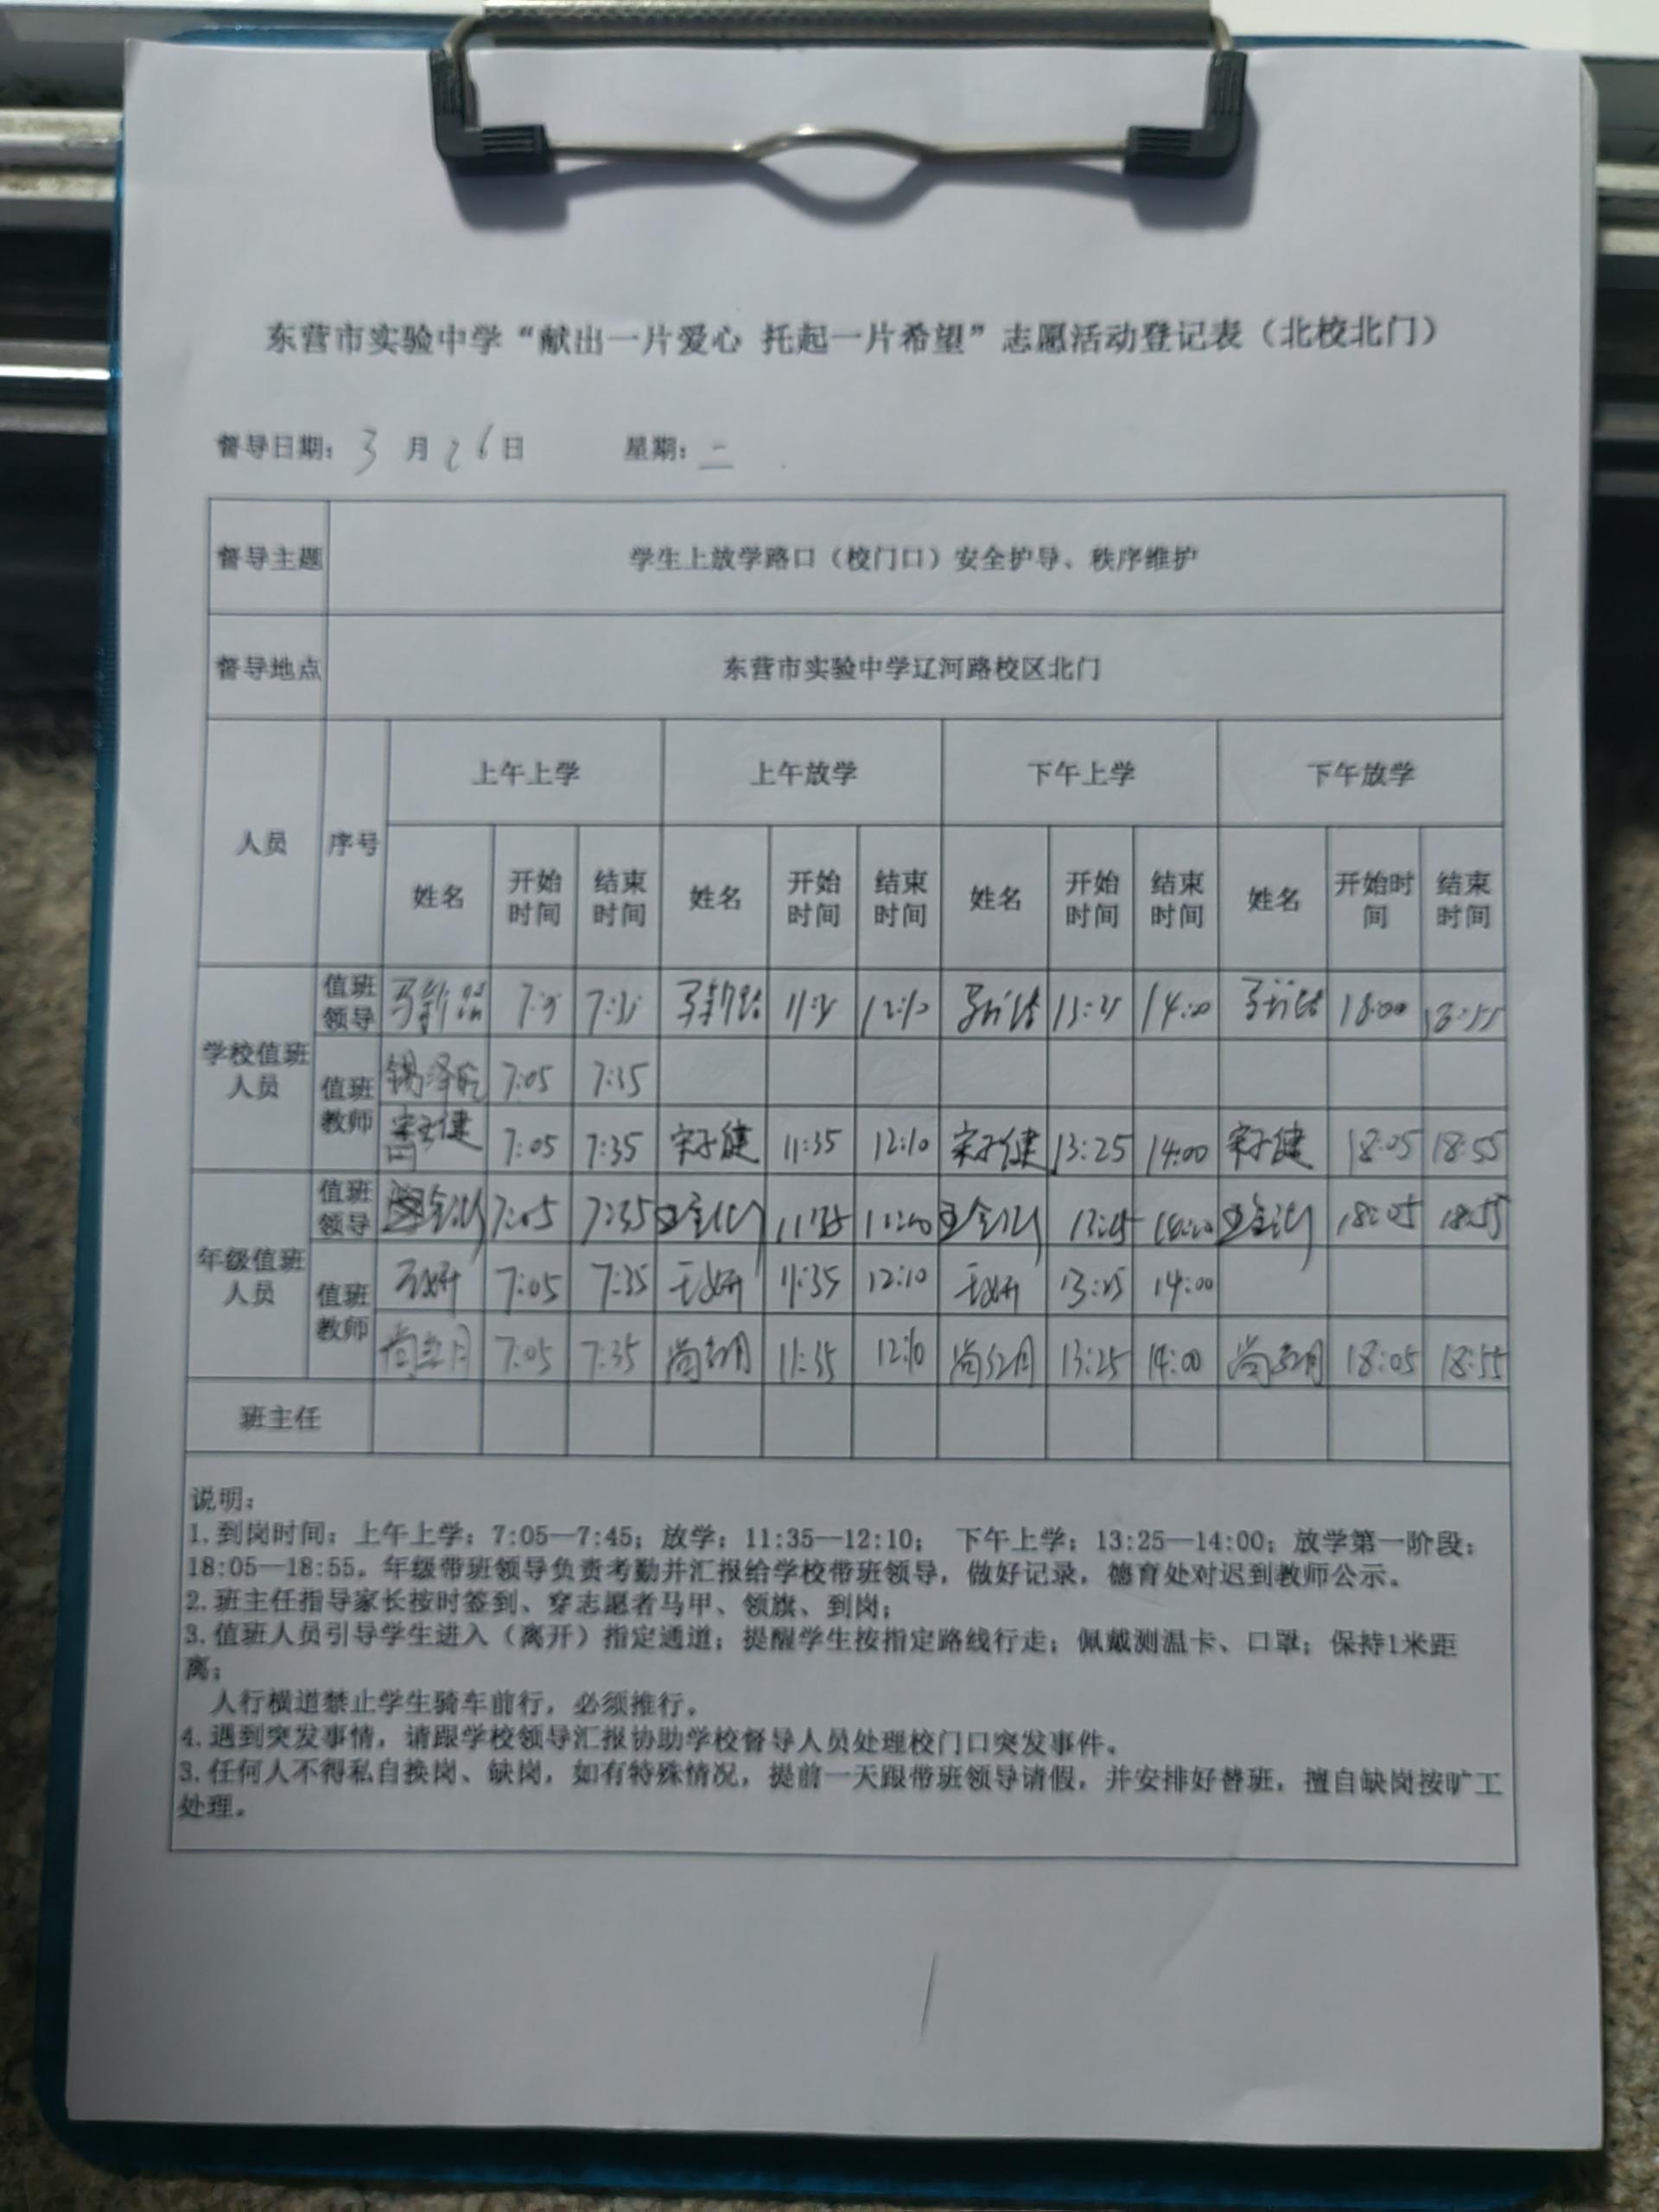 东营市实验中学“献出一片爱心 托起一片希望”志愿活动登记表（北校北门）
督导日期：3月26日 星期：二
督导主题 学生上放学路口（校门口）安全护导、秩序维护
督导地点 东营市实验中学辽河路校区北门
人员 序号 上午上学 上午放学 下午上学 下午放学
姓名 开始时间 结束时间 姓名 开始时间 结束时间 姓名 开始时间 结束时间 姓名 开始时间 结束时间
学校值班人员 值班领导 7:35 12:10 14:00 18:00 18:55
值班教师 7:05 7:35
7:05 7:35 宋子健 11:35 12:10 宋子健 13:25 14:00 宋子健 18:05 18:55
年级值班人员 值班领导 7:05 7:35 18:05 18:55
值班教师 7:05 7:35 11:35 12:10 13:25 14:00
7:05 7:35 尚红月 11:35 12:10 尚红月 13:25 14:00 尚红月 18:05 18:55
班主任
说明：
1.到岗时间：上午上学：7:05—7:45；放学：11:35—12:10； 下午上学：13:25—14:00；放学第一阶段：
18:05—18:55。年级带班领导负责考勤并汇报给学校带班领导，做好记录，德育处对迟到教师公示。
2.班主任指导家长按时签到、穿志愿者马甲、领旗、到岗；
3.值班人员引导学生进入（离开）指定通道；提醒学生按指定路线行走；佩戴测温卡、口罩；保持1米距
离；
人行横道禁止学生骑车前行，必须推行。
4.遇到突发事情，请跟学校领导汇报协助学校督导人员处理校门口突发事件。
3.任何人不得私自换岗、缺岗，如有特殊情况，提前一天跟带班领导请假，并安排好替班，擅自缺岗按旷工
处理。